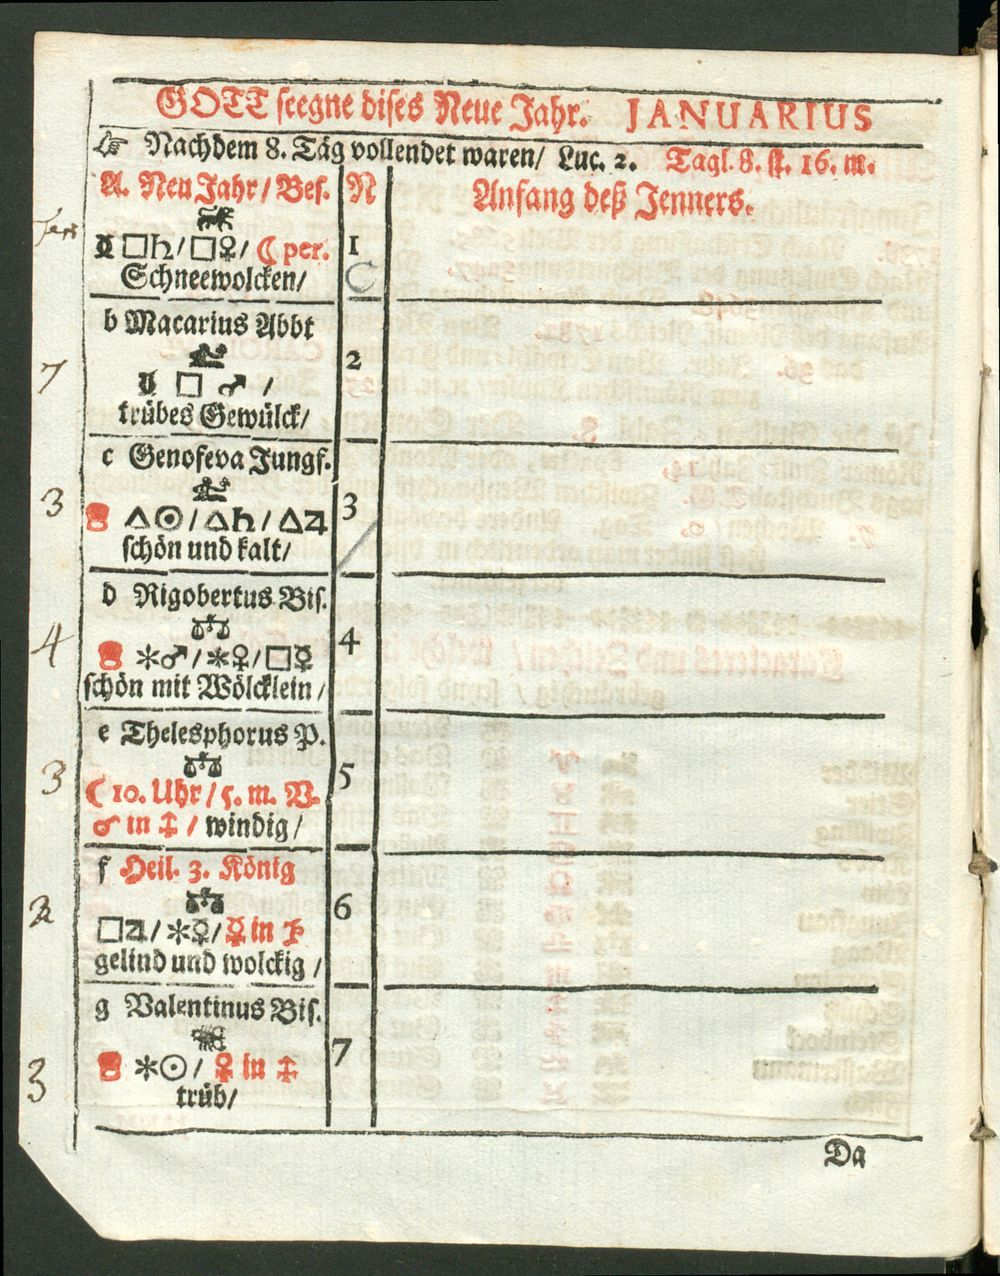 GOTT seegne dises Neue Jahr. JANUARIUS
☞ Nachdem 8. Täg vollendet waren/ Luc. 2. Tagl. 8. st. 16. m.
A. Neu Jahr/ Bes. N Anfang deß Jenners.
□♄/□♀/ ☾ per. 1
Schneewolcken/
b Macarius Abbt
2
7
□ ♂ /
trübes Gewülck/
c Genofeva Jungf.
3
3
△☉/△♄/△♃
schön und kalt/
d Rigobertus Bis.
4
4
✻♂/✻♀/□☿
schön mit Wölcklein/
e Thelesphorus P.
3
5
☾ 10. Uhr/ 5. m. V.
♂ in ♐ / windig/
f Heil. 3. König
6
2
□♃/✻☿/☿ in ♑
gelind und wolckig /
g Valentinus Bis.
7
3
✻☉/ ♀ in ♐
trüb/
Da